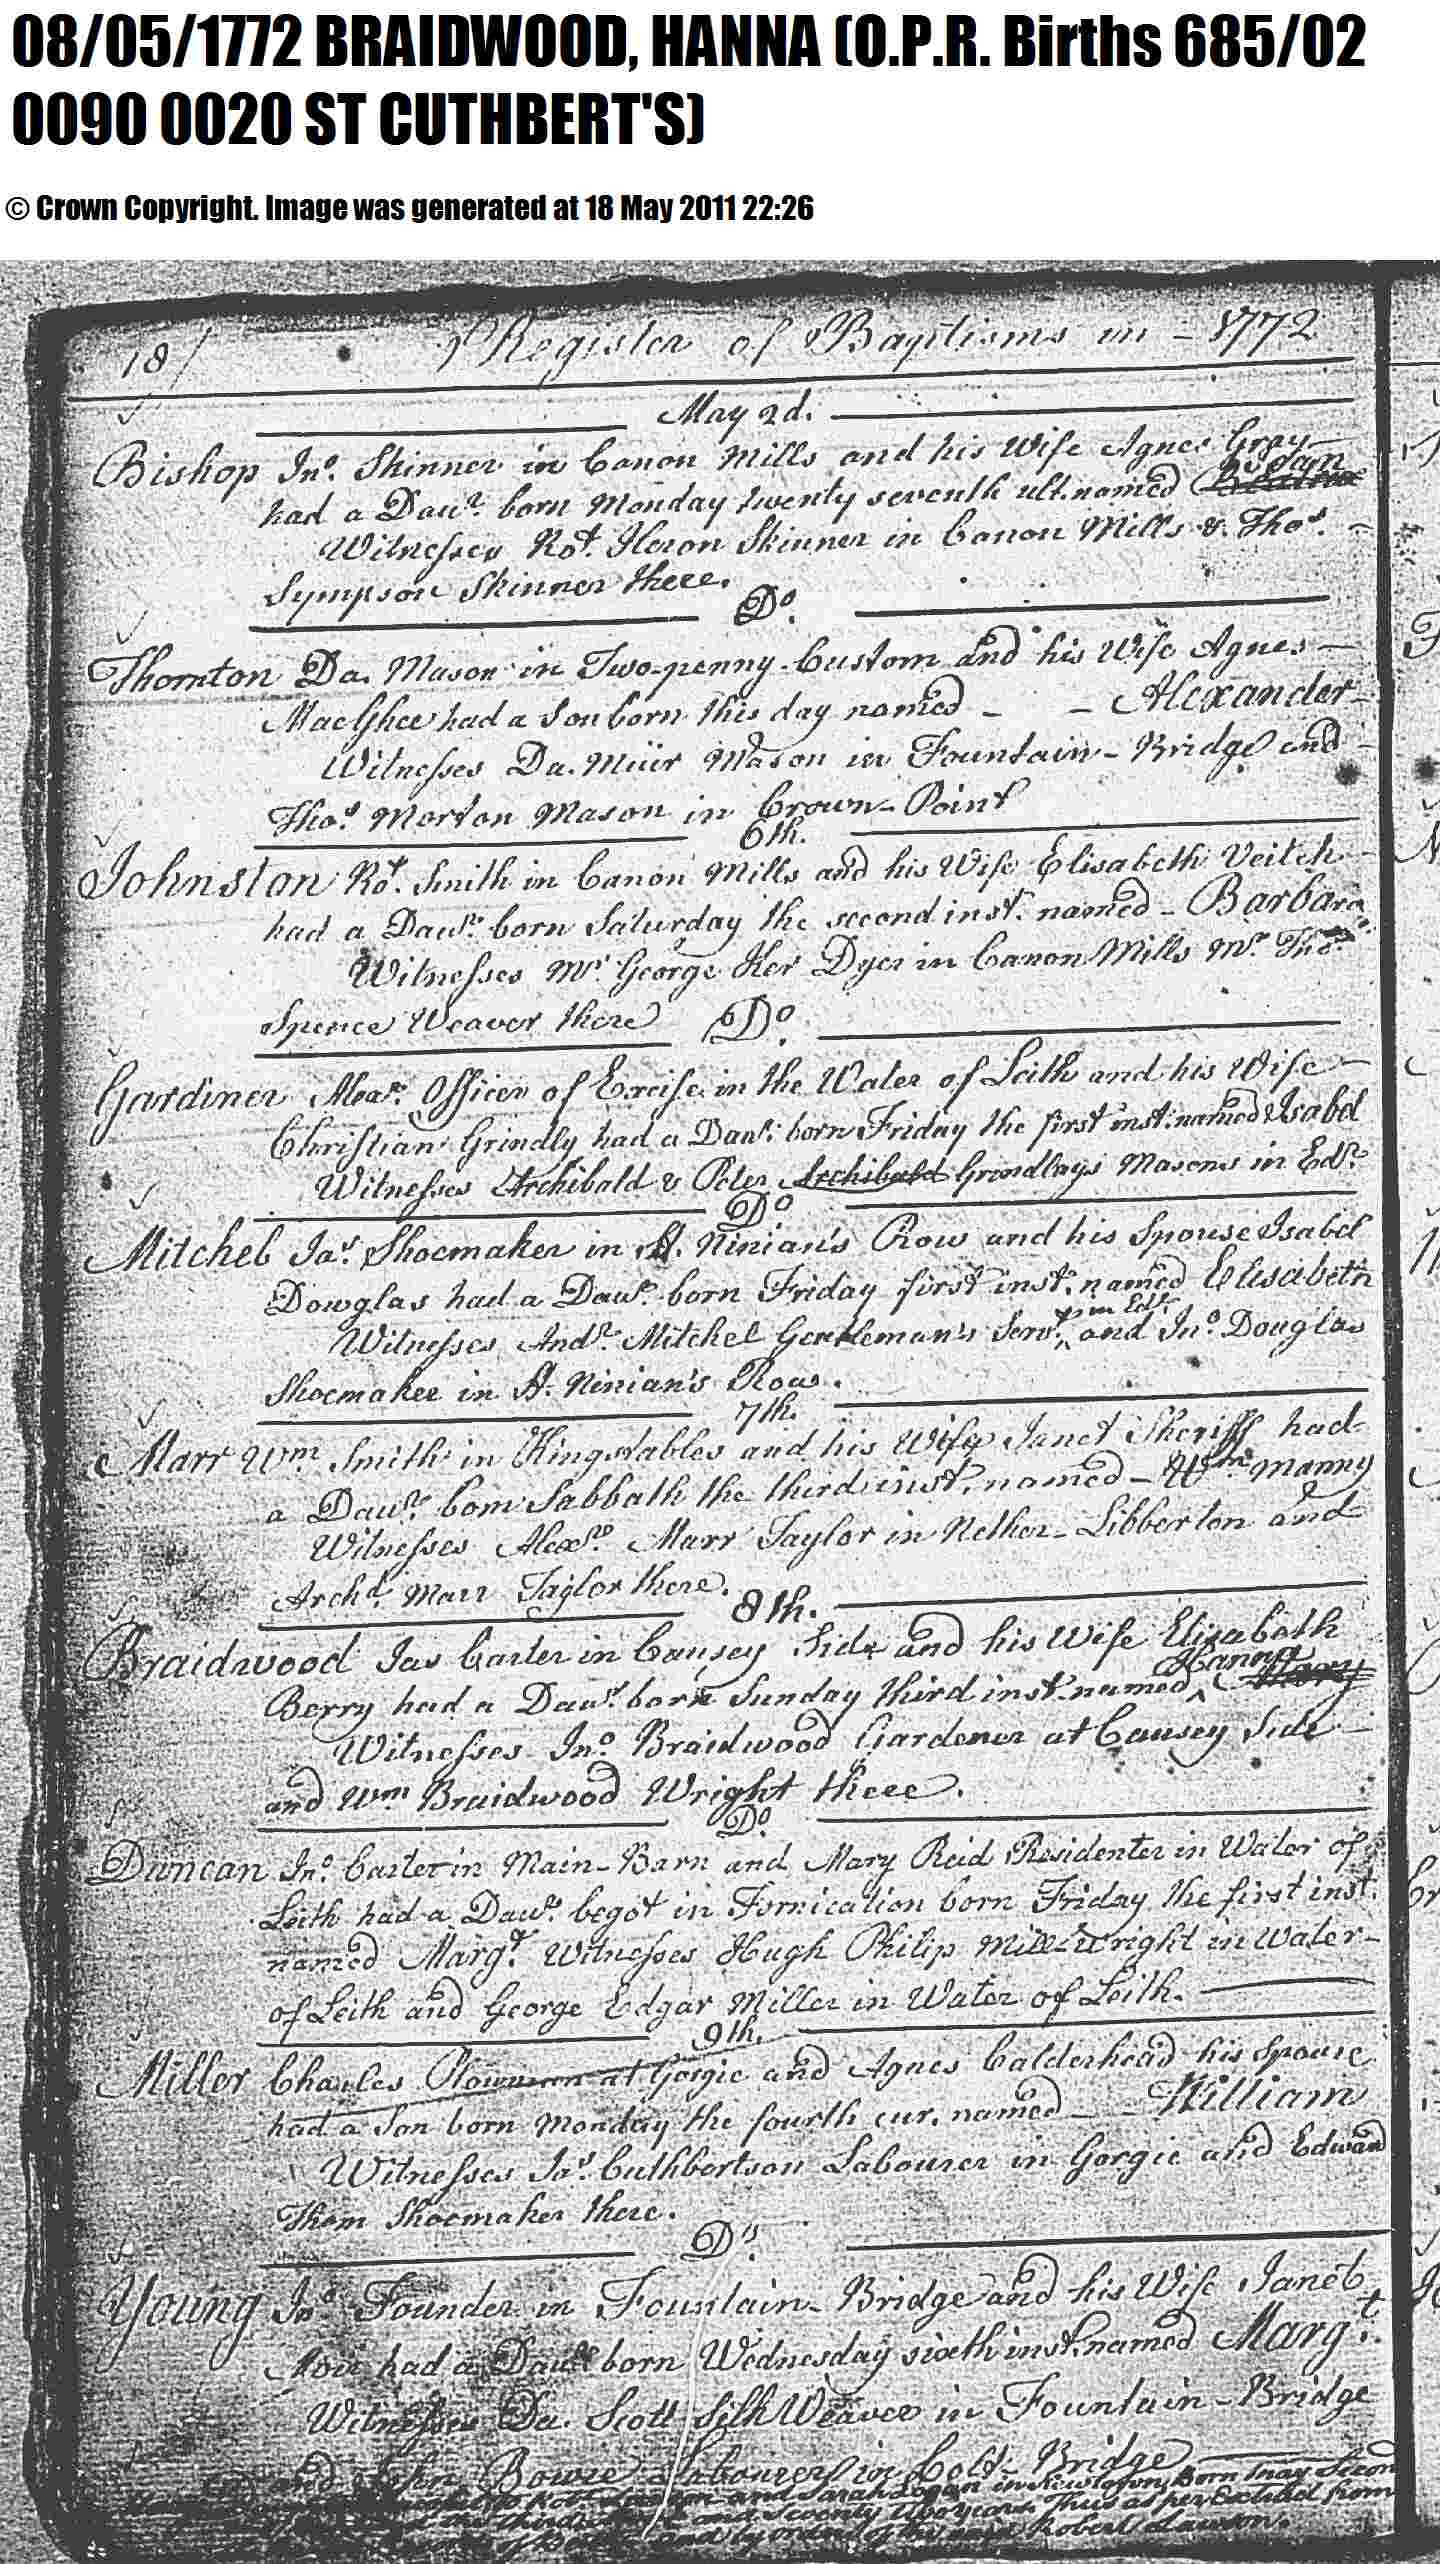 08/05/1772 BRAIDWOOD, HANNA (O.P.R. Births 685/02
0090 0020 ST CUTHBERT'S)
© Crown Copyright. Image was generated at 18 May 2011 22:26
18 Register of Baptisms in - 1772
May 2d.
Bishop Jno. Skinner in Canon Mills and his Wife Agnes Gray
had a Dawr. born Monday twenty seventh ult. named
Witnesses Rot. Heron Skinner in Canon Mills & Thos.
Sympson Skinner there.
Do.
Thomton Da. Mason in Two-penny-Custom and his Wife Agnes
MacGhee had a Son born this day named - - Alexander
Witnesses Da. Muir Mason in Fountain-Bridge and
Thos. Morton Mason in Crown-Point
6th.
Johnston Rot. Smith in Canon Mills and his Wife Elisabeth Veitch
had a Dawr. born Saturday the second inst. named - Barbara
Witnesses Mr. George Ker Dyer in Canon Mills Mr. Thos.
Spence Weaver there Do.
Gardiner Alexr. Officer of Excise in the Water of Leith and his Wife
Christian Grindly had a Dawr. born Friday the first inst. named Isabel
Witnesses Archibald & Peter Archibald Grindlays Masons in Edr.
Do
Mitchel Jas. Shoemaker in St. Ninian's Row and his Spouse Isabel
Dowglas had a Dawr. born Friday first inst. named Elisabeth
Witnesses Andr. Mitchel Gentleman's Servt. in Edr. and Jno. Douglas
Shoemaker in St. Ninian's Row.
7th.
Marr Wm. Smith in Kingstables and his Wife Janet Sheriff had
a Dawr. born Sabbath the third inst. named -
Witnesses Alexr. Marr Taylor in Nether-Libberton and
Archd. Marr Taylor there.
8th.
Braidwood Jas Carter in Causey Side and his Wife Elizabeth
Berry had a Dawr. born Sunday third inst. named Hanna Mary
Witnesses Jno. Braidwood Gardener at Causey Side
and Wm Braidwood Wright there.
Do.
Duncan Jno. Carter in Main-Barn and Mary Reid Residenter in Water of
Leith had a Dawr. begot in Fornication born Friday the first inst.
named Margt. Witnesses Hugh Philip Mill-Wright in Water-
of Leith and George Edgar Miller in Water of Leith.
9th.
Miller Charles Plowman at Gorgie and Agnes Calderhead his Spouse
had a Son born Monday the fourth cur. named - - William
Witnesses Jas. Cuthbertson Labourer in Gorgie and Edward
Thom Shoemaker there.
Do.
Young Jno. Founder in Fountain-Bridge and his Wife Janet
Moir had a Dawr. born Wednesday sixth inst. named Margt.
Witnesses Da. Scott Silk Weaver in Fountain-Bridge
and John Bowie Labourer in Colt-Bridge
and Sarah Logan in Newtown, Born May Second
and Seventy two years. Thus as per Extract from
and by order of Robert Lawson.